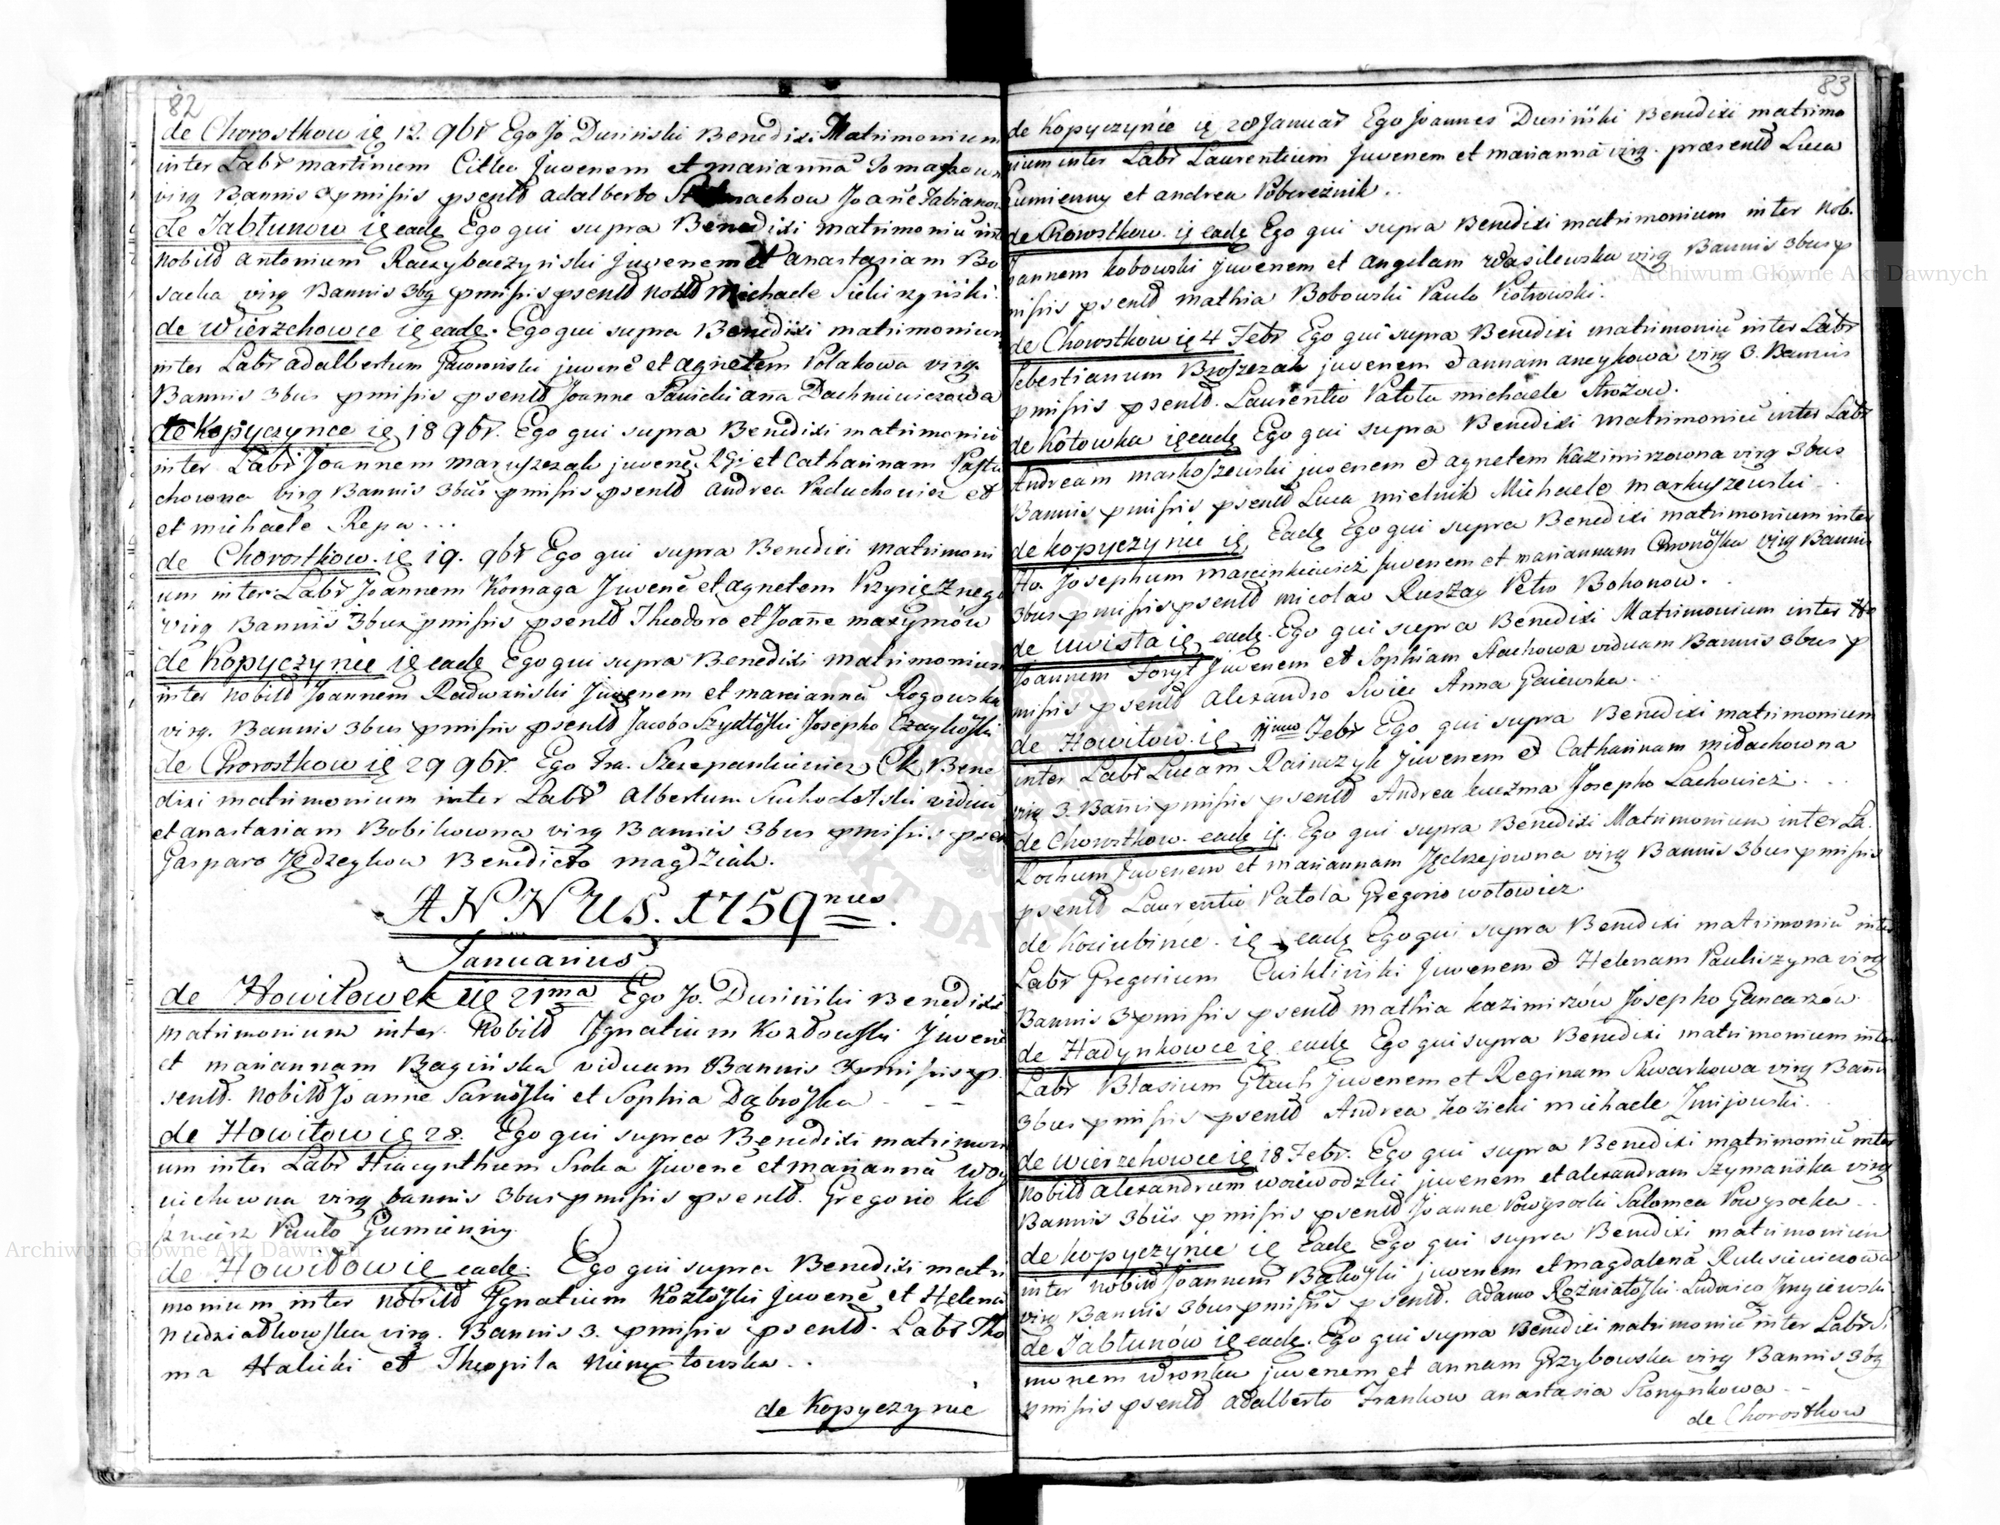 82
de Chorostkow ię 12. 9br Ego Jo Dusiński Benedixi Matrimonium
inter Labr martinum Citko Juvenem et mariannã
virg Bannis 3 pmissis psentb adalberto Joañe Fabianow
de Jabłunow ię eadę Ego qui supra Benedixi matrimoniũ int
Nobilb antonium Raczybaczyński Juvenem et anastasiam Bo
sacka virg Bannis 3bq pmissis psentb Nobb Michaele Siekirzyński.
de Wierzchowce ię eadę. Ego qui supra Benedixi matrimonium
inter Labr adalbertum Jaworiński juvenẽ et agnetem Polakowa virg.
Bannis 3bus pmissis psentb Joanne Sawicki ana Dachniwiczowa
de Kopyczynce ię 18 9br. Ego qui supra Benedixi matrimoniũ
inter Labr Joannem maruszczak juvenẽ et Catharinam Pastu
chowna virg Bannis 3bus pmissis psentb andrea Paduchowicz et
et michaele Repa...
de Chorostkow. ię 19. 9br Ego qui supra Benedixi matrimoni
um inter Labr Joannem Kornaga Juvenẽ et agnetem Przysięznego
virg Bannis 3bus pmissis psentb Theodoro et Joañe maxymów
de Kopyczynie ię eadę Ego qui supra Benedixi matrimonium
inter Nobilb Joannem Radwański Juvenem et mariannã Rogowska
virg. Bannis 3bus pmissis psentb Jacobo Szydłoski Josepho Czaykoski
de Chorostkow ię 29 9br. Ego Fra. Szczepankiewicz CK Bene
dixi matrimonium inter Labr albertum Suchodolski viduũ
et anastasiam Bobikowna virg Bannis 3bus pmissis psen
Gasparo Jędrzeykow Benedicto magdziak.
ANNUS. 1759nus.
Januarius
de Howiłow ek ię 21ma Ego Jo. Dusiński Benedixi
matrimonium inter Nobilb Ignatium Kozłowski Juvenẽ
et mariannam Bagińska viduam Bannis 3 pmissis p.
sentb. Nobilb Joanne Sarnoski et Sophia Dąbroska - - -
de Howiłow ię 28. Ego qui supra Benedixi matrimoni
um inter Labr Hiacynthum Sroka Juvenẽ et mariannã Woy
cichowna virg bannis 3bus pmissis psentb. Gregorio
Pauło Gumienny.
de Howiłow ię eadę. Ego qui supra Benedixi matri
monium inter Nobilb Ignatium Kozłoski Juvenẽ et Helenã
Niedziałkowska virg. Bannis 3. pmissis psentb. Labr Tho
ma Halicki et Theopila Niemętowska..
de Kopyczynie
83
de Kopyczynie ię 28 Januar Ego Joannes Dusiński Benedixi matrimo
nium inter Labr Laurentium Juvenem et mariannã virg. præsentb Luca
Gumienny et andrea Pobereżnik..
de Chorostkow. ię eadę Ego qui supra Benedixi matrimonium inter Nob.
Joannem Kobowski Juvenem et angelam Wasilewska virg Bannis 3bus p
missis psentb mathia Bobowski Paulo Piotrowski.
de Chorostkow ię 4 Febr Ego qui supra Benedixi matrimoniũ inter Labr
Sebestianum Broszczak juvenem et annam ancykowa virg 3. Bannis
pmissis psentb. Laurentio Patoła michaele Strożow.
de Kotowka ię eadę Ego qui supra Benedixi matrimoniũ inter Labr
Andream markoszewski juvenem et agnetem Kazimirzowna virg 3bus
Bannis pmissis psentb Luca mielnik Michaele markuszewski..
de Kopyczynie ię Eadę Ego qui supra Benedixi matrimonium inter
No. Josephum marcinkiewicz Juvenem et mariannam virg Bannis
3bus pmissis psentb nicolao Ruszay Petro Bohonow.
de Uwisła ię eadę. Ego qui supra Benedixi Matrimonium inter
Joannem Foryt Juvenem et Sophiam Stachowa viduam Bannis 3bus p
missis psentb Alexandro Anna Gaiewska.
de Howiłow. ię 11imo Febr Ego qui supra Benedixi matrimonium
inter Labr Lucam Raiuczyk Juvenem et Catharinam michachowna
virg 3. Bañis pmissis psentb Andrea kuzma Josepho Lachowicz...
de Chorostkow. eadę ię. Ego qui supra Benedixi Matrimonium inter La.
Rochum Juvenem et mariannam Jędrzejowna virg Bannis 3bus pmissis
psentb Laurentio Patoła Gregorio wołowicz.
de Kociubince. ię eadę Ego qui supra Benedixi matrimoniũ inter
Labr Gregorium Cwikliński Juvenem et Helenam Pauliszyna virg
Bannis 3 pmissis psentb mathia kazimirzów Josepho Gancarzów.
de Hadynkowce ię eadę Ego qui supra Benedixi matrimonium inter
Labr Blasium Głuch Juvenem et Reginam Skwarkowa virg Bañ
3bus pmissis psentb Andrea Kozicki michaele Zmijowski.
de Wierzchowce ię 18 Febr. Ego qui supra Benedixi matrimoniũ inter
Nobilb alexandrum woiewodzki juvenem et alexandram Szymańska virg
Bannis 3bus pmissis psentb Joanne Powysocki Salomea Powysocka..
de Kopyczynie ię Eadę Ego qui supra Benedixi matrimonium
inter Nobilb Joannem Bąkoski juvenem et magdalenã Ruksiewiczowa
virg Bannis 3bus pmissis psentb. adamo Rozniatoski Ludovico Zmyiewski.
de Jabłunów ię eadę. Ego qui supra Benedixi matrimoniũ inter Labr Si
monem Wronka juvenem et annam Grzybowska virg Bannis 3bq
pmissis psentb adalberto Frankow anastasia Skonynkowa..
de Chorostkow
Archiwum Główne Akt Dawnych
Archiwum Główne Akt Dawnych